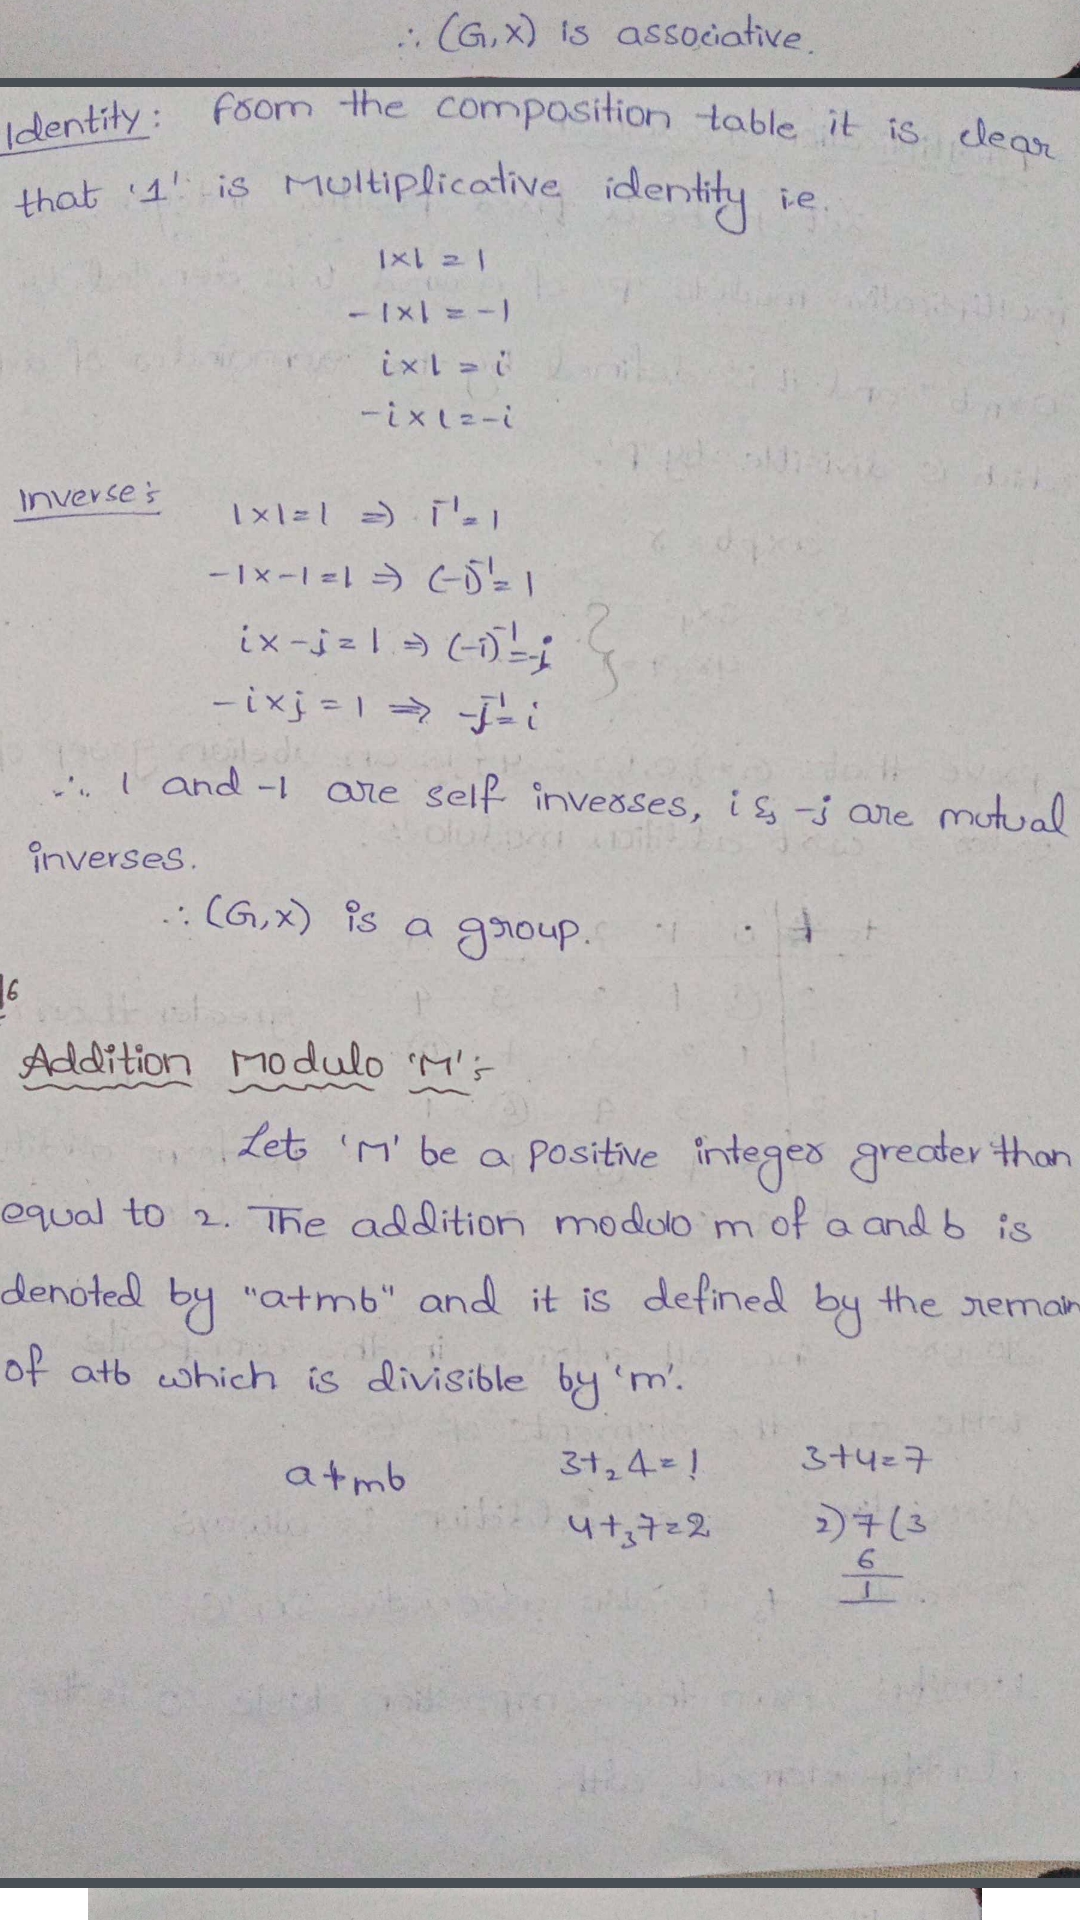 ∴ (G,x) is associative.
Identity: from the composition table it is clear
that '1' is Multiplicative identity i.e.
1x1 = 1
-1x1 = -1
ix1 = i
-ix1 = -i
Inverse:
1x1=1 ⇒ 1⁻¹=1
-1x-1=1 ⇒ (-1)⁻¹=1
ix-j=1 ⇒ (-i)⁻¹=-j
-ixj=1 ⇒ -j⁻¹=i
∴ 1 and -1 are self inverses, i & -j are mutual
inverses.
∴ (G,x) is a group.
16
Addition Modulo 'M':
Let 'M' be a positive integer greater than
equal to 2. The addition modulo m of a and b is
denoted by "a+mb" and it is defined by the remain
of a+b which is divisible by 'm'.
a+mb 3+₂4=1 3+4=7
4+₃7=2 2)7(3
6
1